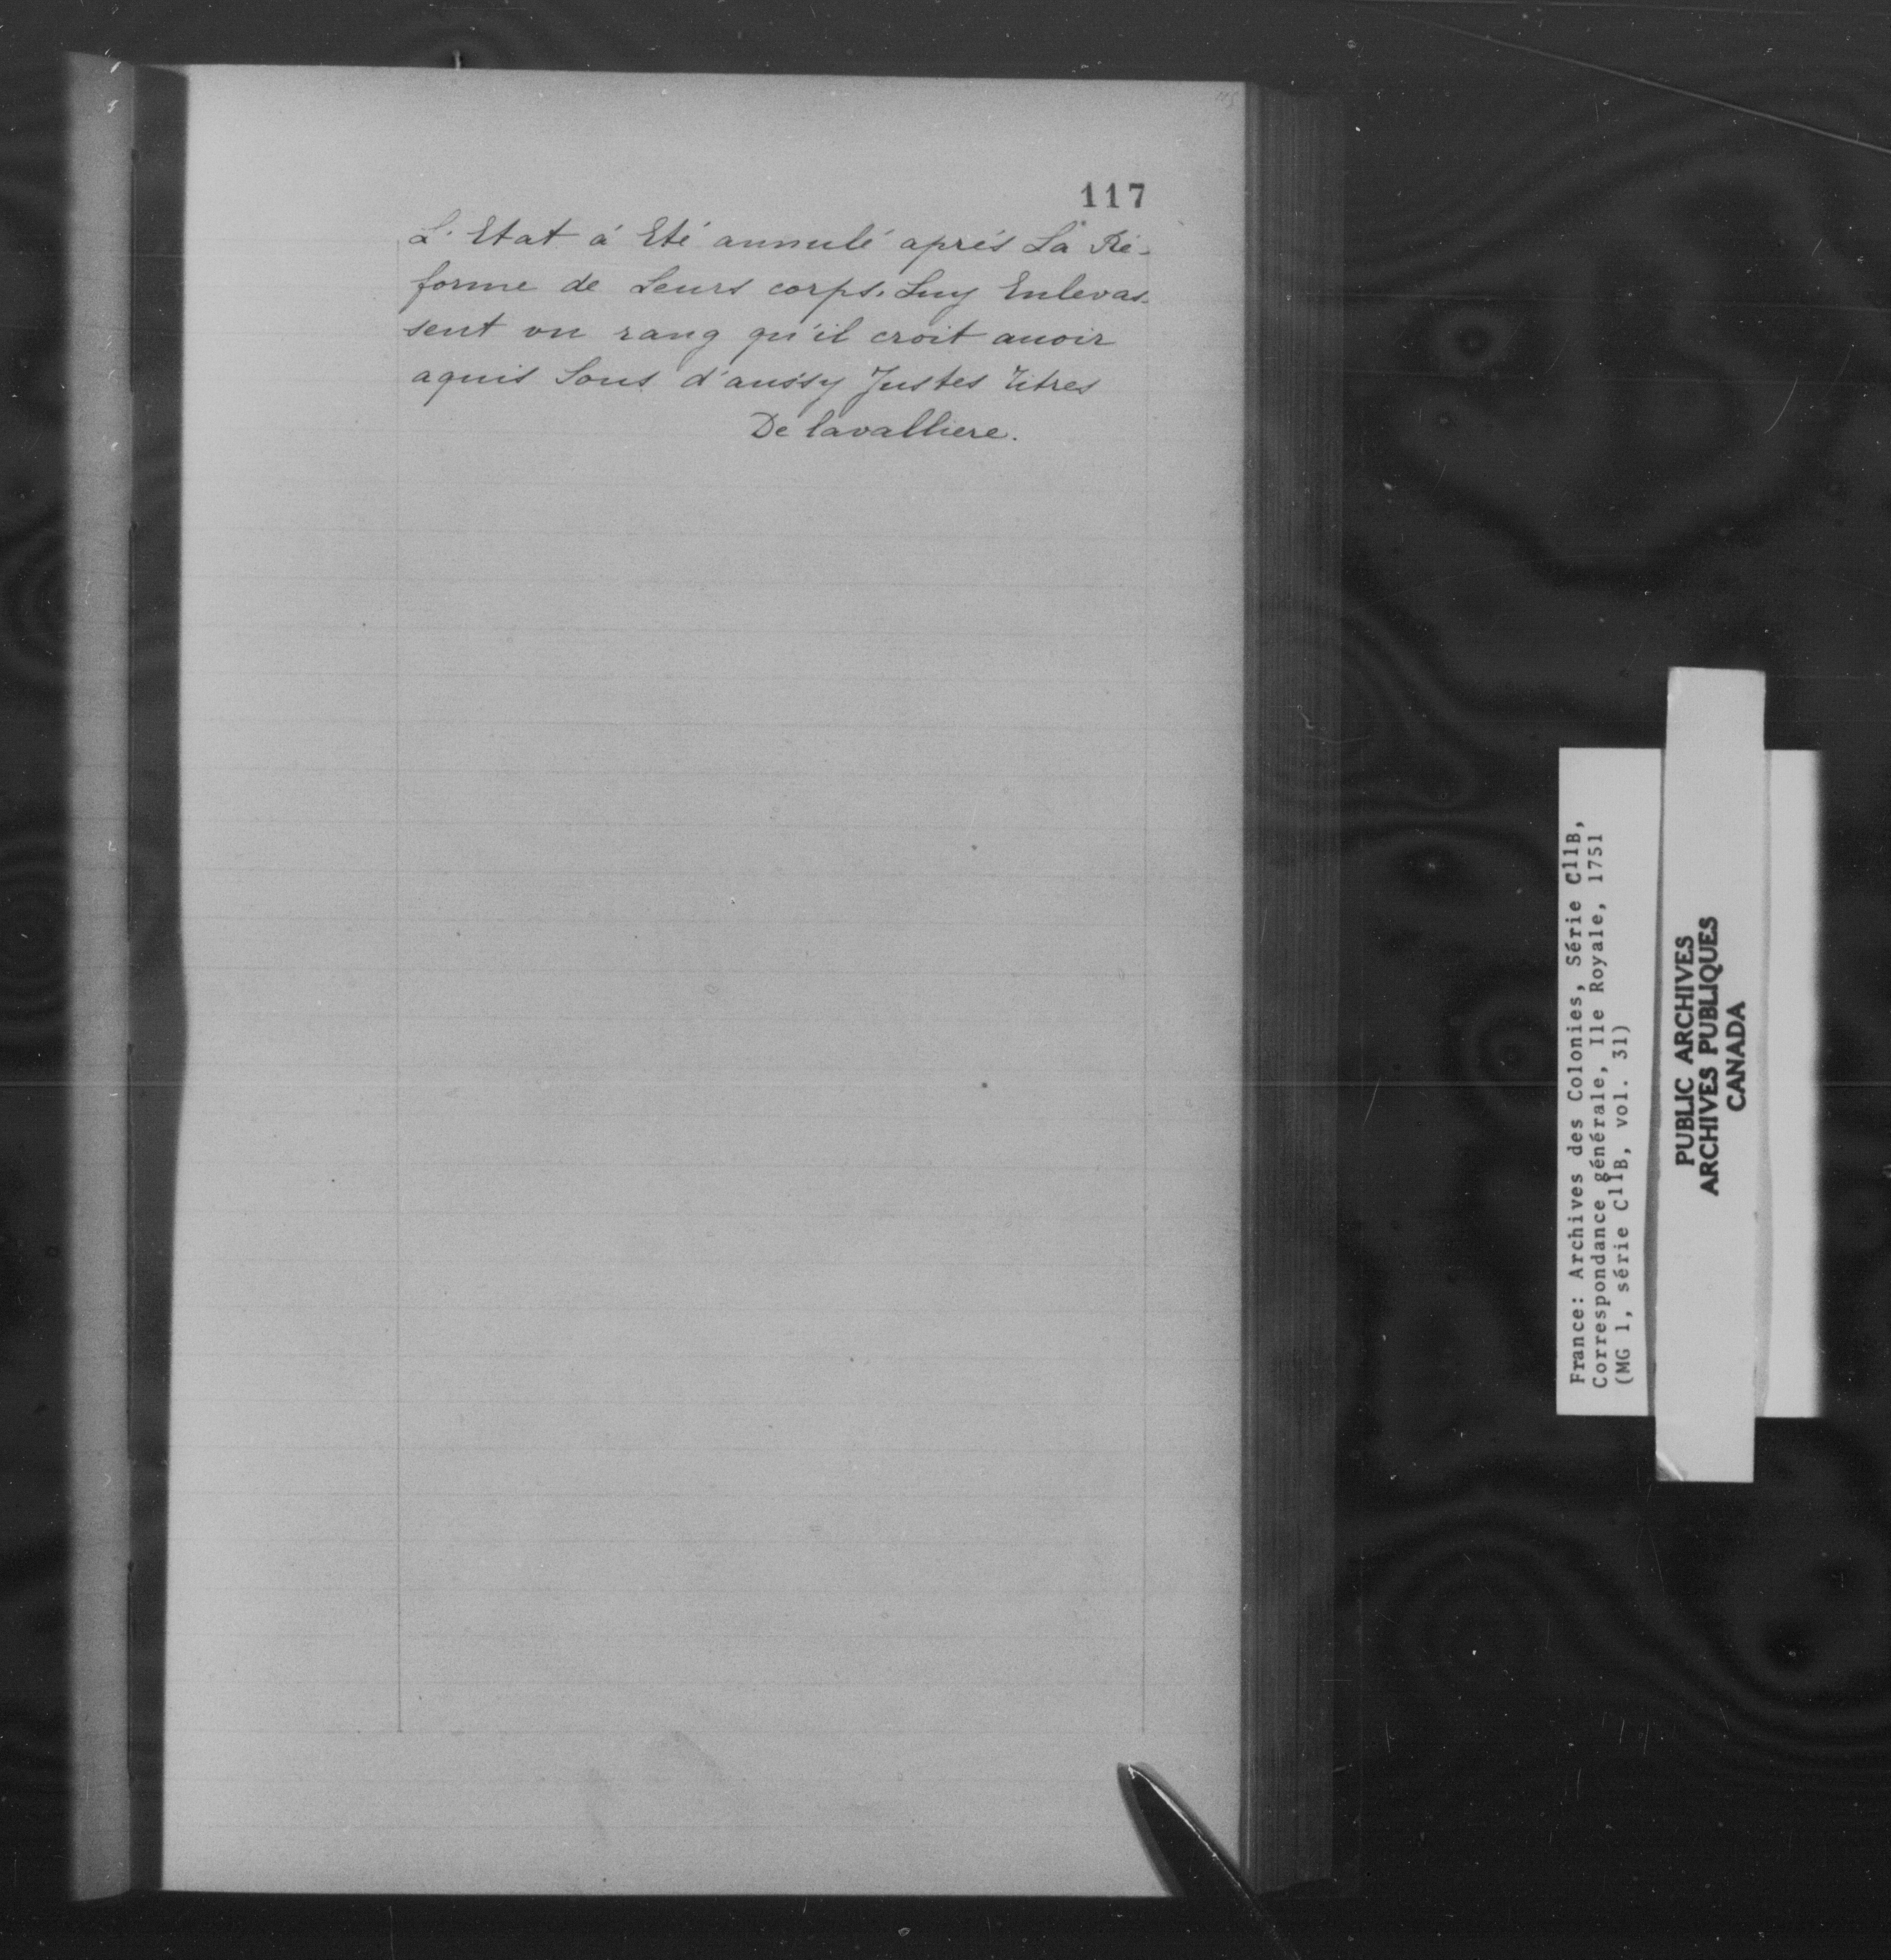 117
L'Etat á Eté annulé aprés La Ré-
forme de Leurs corps. Luy Enlevas-
sent vn rang qu'il croit auoir
aquis Sous d'aussy Justes titres
De lavalliere.
France: Archives des Colonies, Série C11B,
Correspondance générale, Ile Royale, 1751
(MG 1, série C11B, vol. 31)
PUBLIC ARCHIVES
ARCHIVES PUBLIQUES
CANADA